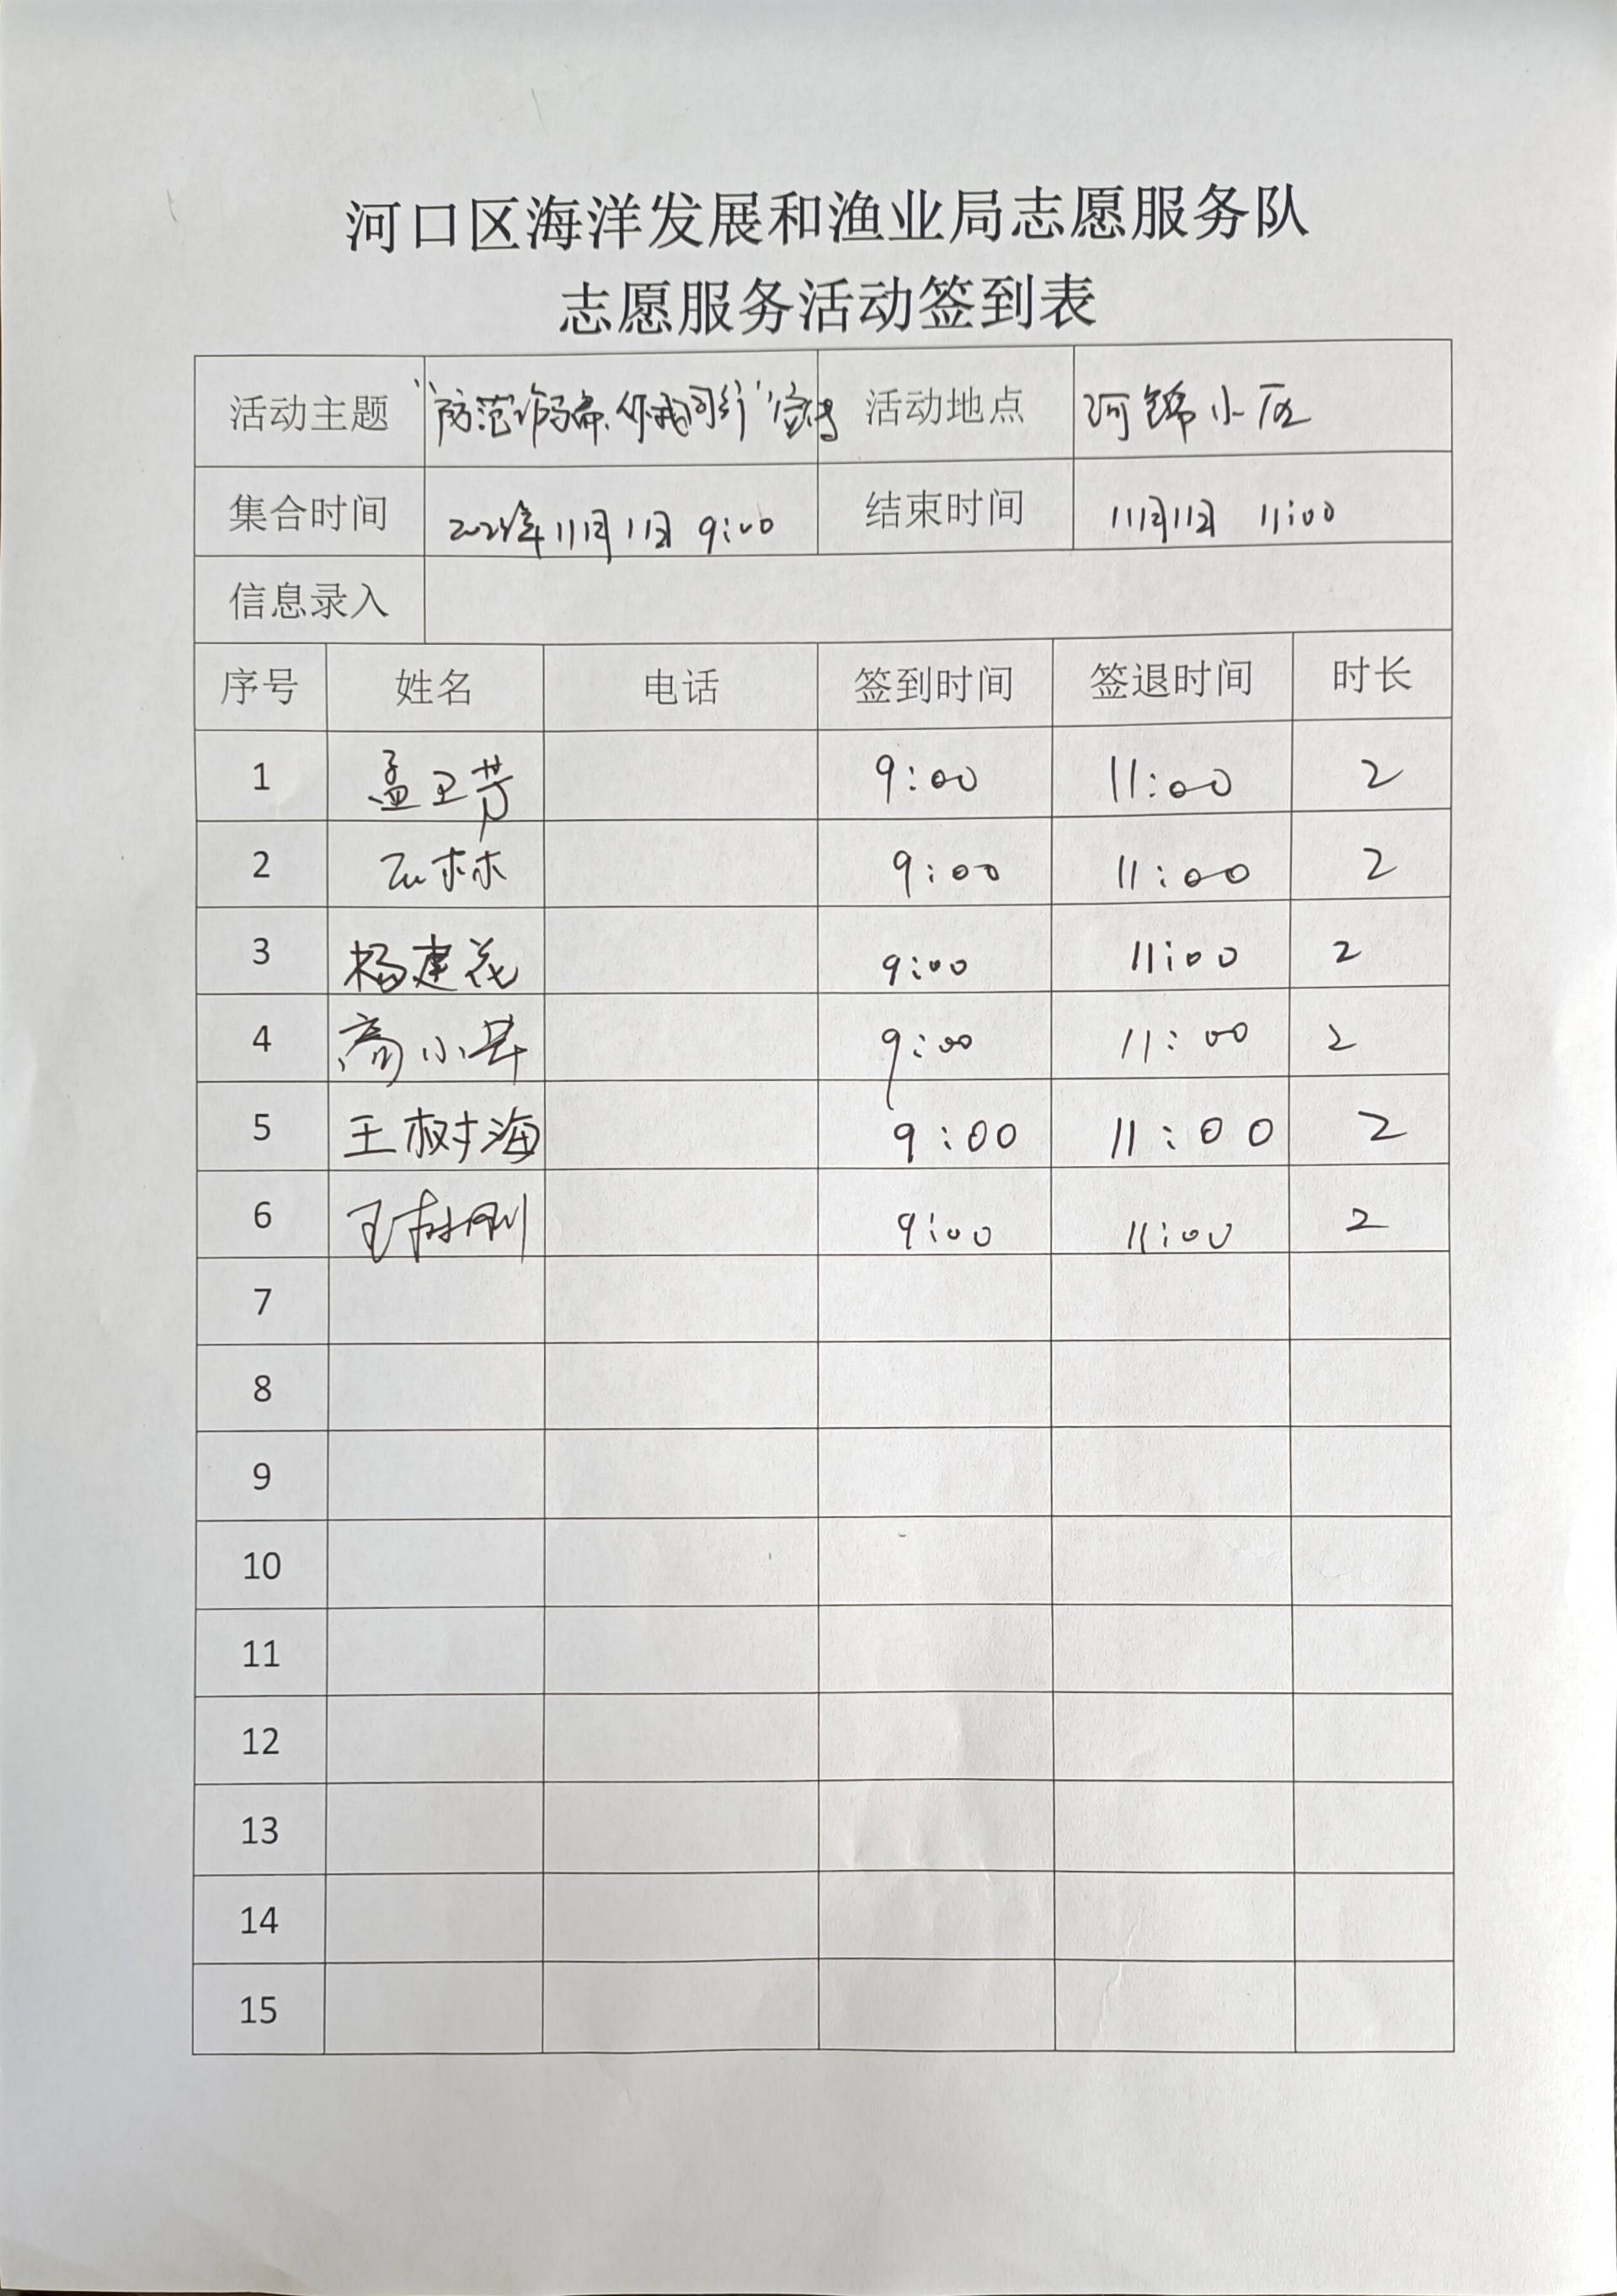 河口区海洋发展和渔业局志愿服务队
志愿服务活动签到表
活动主题 “防范诈骗、你我同行”宣传 活动地点 河锦小区
集合时间 11月1日 9:00 结束时间 11月1日 11:00
信息录入
序号 姓名 电话 签到时间 签退时间 时长
1 孟卫芳 9:00 11:00 2
2 石林 9:00 11:00 2
3 杨建花 9:00 11:00 2
4 高小 9:00 11:00 2
5 王树海 9:00 11:00 2
6 王树刚 9:00 11:00 2
7
8
9
10
11
12
13
14
15